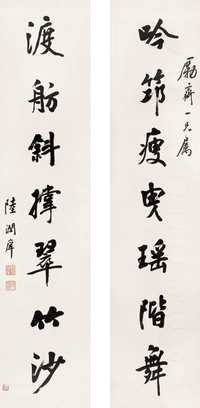 吟筇瘦曳瑶階舞
渡舫斜撑翠竹沙
陸潤庠